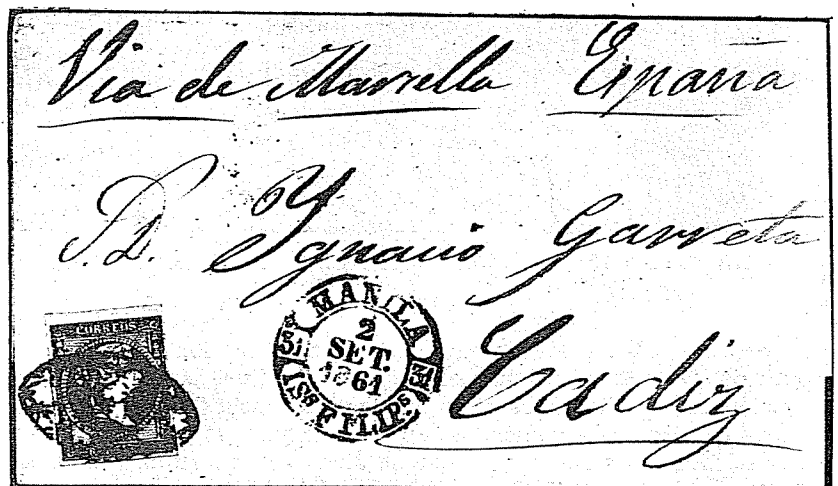 Via de Marsella España
S.D. Ygnacio Garreta
CORREOS
MANILA
31 2 31
SET.
1861
ISˢ FILIPˢ
Cadiz